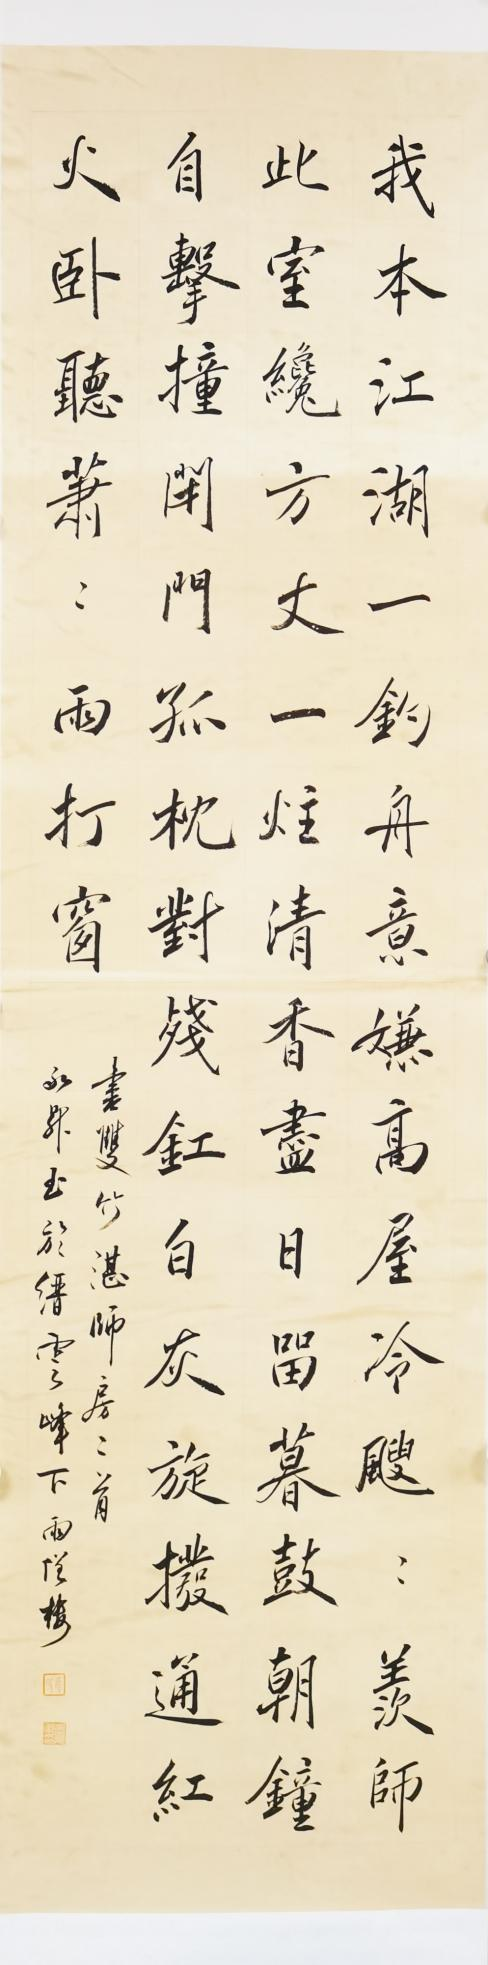 我本江湖一釣舟意嫌高屋冷颼〻羨師
此室纔方丈一炷清香盡日留暮鼓朝鐘
自擊撞閉門孤枕對殘釭白灰旋撥通紅
火卧聽蕭〻雨打窗
書雙竹湛師房二首
永昇書於縉雲峰下雨